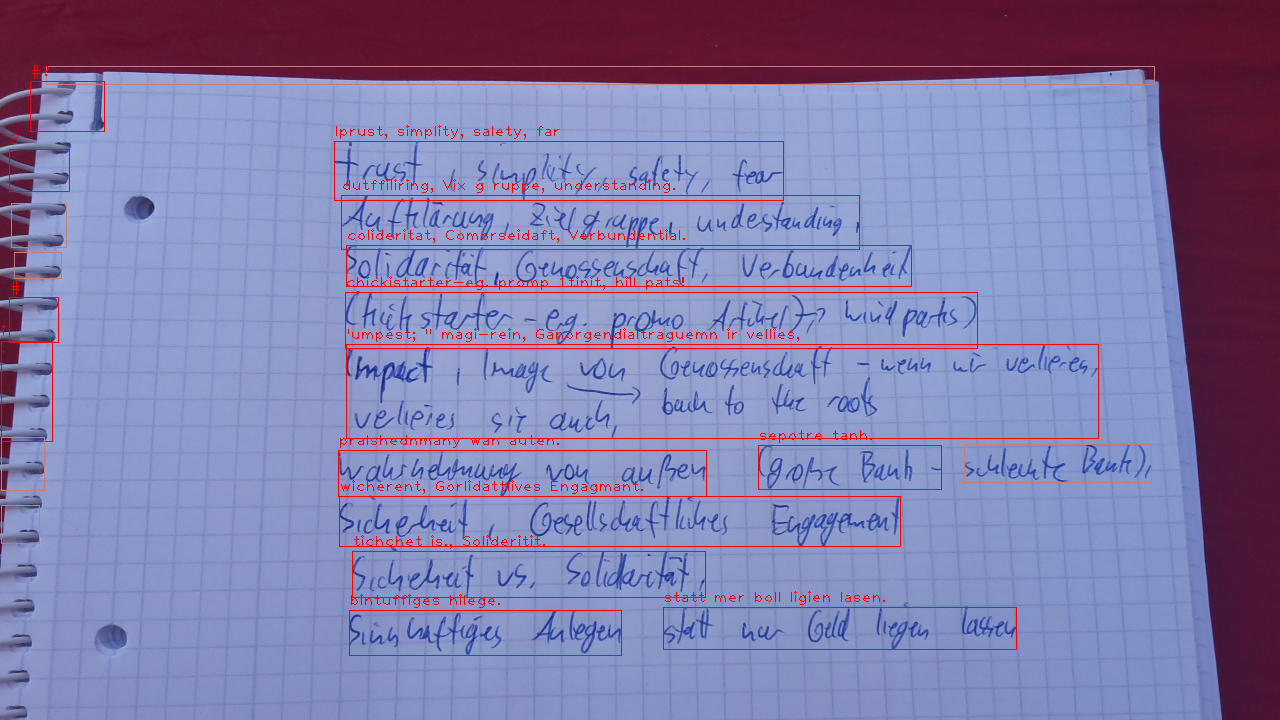 lprust, simplity, salety, far
trust, simplity, safety, fear
dutffiliring, Vix g ruppe, understanding.
Aufklärung, Zielgruppe, undestanding,
coliderität, Comorseidaft, Verbundential.
Solidarität, Genossenschaft, Verbundenheit
chickistarter-eg. promp 1finit, hill pats!
(Kickstarter - eg. promo Artikel) → windparks)
'umpest; " magi-rein, Ganorgendialtraguemn ir vellies,
Impact, Image von Genossenschaft - wenn wir verlieres,
verlieres sie auch, → back to the roots
pralshednmany wan auten. sepotre tanh.
Wahrnehmung von außen (große Bank - schlechte Bank),
wicherent, Gorlidattlives Engagmant.
Sicherheit, Gesellschaftliches Engagement
tichchet is., Solideritit.
Sicheheit vs. Solidarität,
bintuffiges hllege. statt mer boll ligien lasen.
Sinnhaftiges Anlegen statt nur Geld liegen lassen